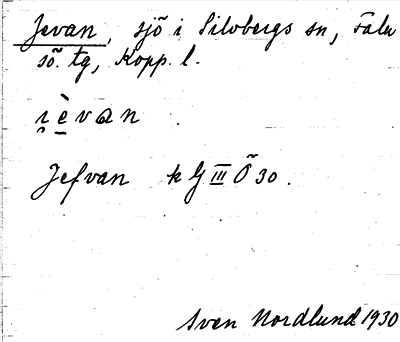 Jevan, sjö i Silvbergs sn, Falu
sö. tg, Kopp. l.
i̯èvan
Jefvan k G III Ö 30.
Sven Nordlund 1930